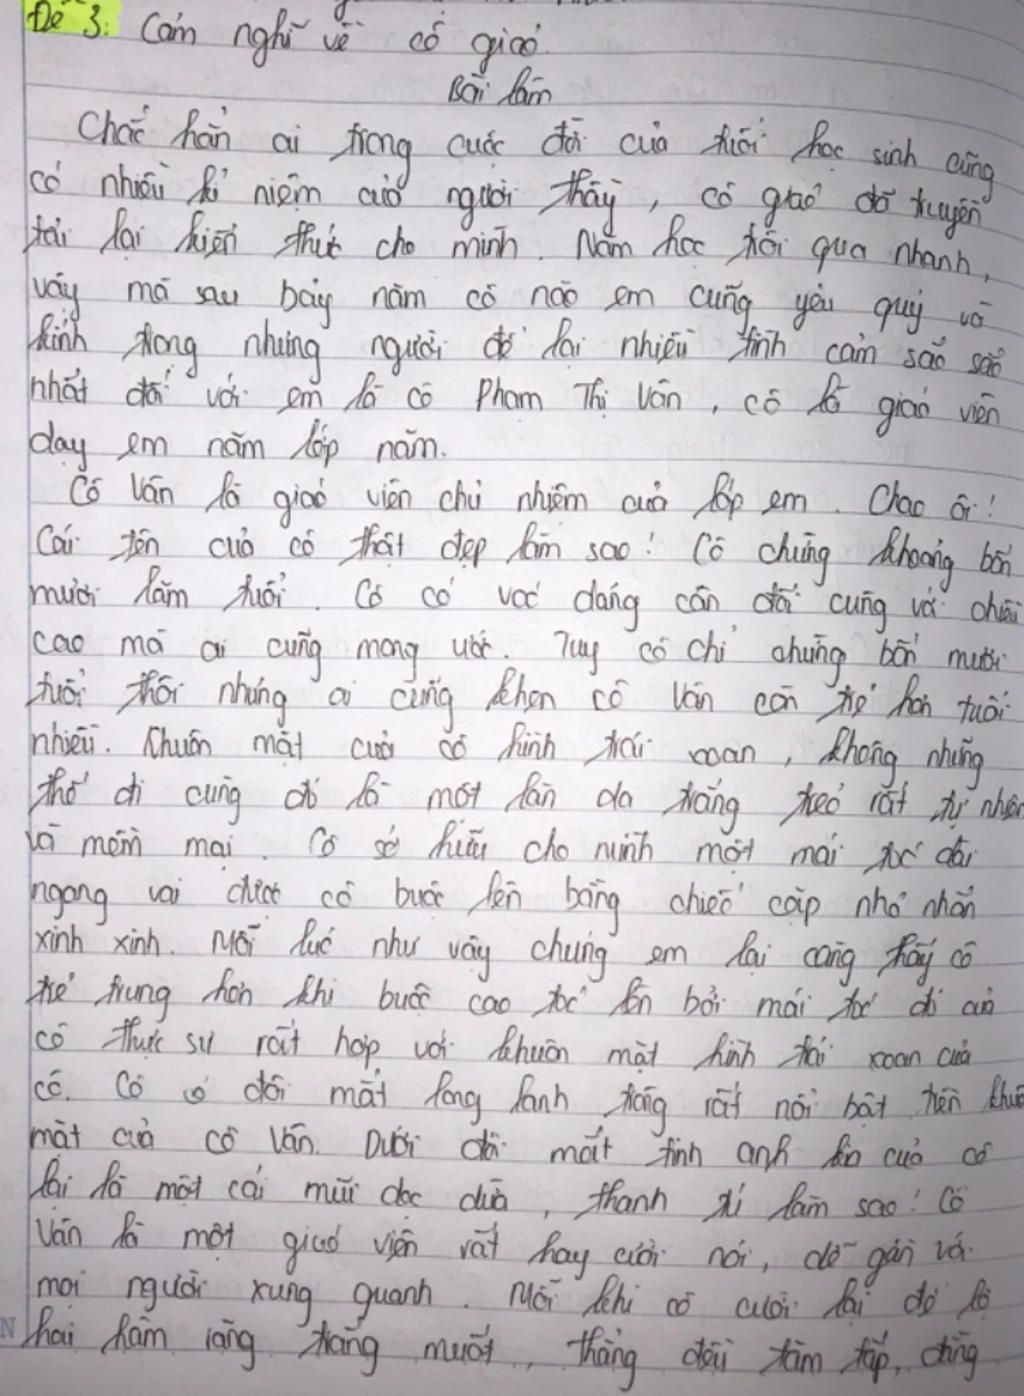 Đề 3: Cảm nghĩ về cô giáo.
Bài làm
Chắc hẳn ai trong cuộc đời của tuổi học sinh cũng
có nhiều kỉ niệm của người thầy, cô giáo đã truyền
tải lại kiến thức cho mình. Năm học trôi qua nhanh,
vậy mà sau bảy năm cô nào em cũng yêu quý và
kính trọng nhưng người để lại nhiều tình cảm sâu sắc
nhất đối với em là cô Phạm Thị Vân, cô là giáo viên
dạy em năm lớp năm.
Cô Vân là giáo viên chủ nhiệm của lớp em. Chao ôi!
Cái tên của cô thật đẹp làm sao! Cô chừng khoảng bốn
mươi lăm tuổi. Cô có vóc dáng cân đối cùng với chiều
cao mà ai cũng mong ước. Tuy cô chỉ chừng bốn mươi
tuổi thôi nhưng ai cũng khen cô Vân còn trẻ hơn tuổi
nhiều. Khuôn mặt của cô hình trái xoan, không những
thế đi cùng đó là một làn da trắng trẻo rất tự nhiên
và mềm mại. Cô sở hữu cho mình một mái tóc dài
ngang vai được cô buộc lên bằng chiếc cặp nhỏ nhắn
xinh xinh. Mỗi lúc như vậy chúng em lại càng thấy cô
trẻ trung hơn khi buộc cao tóc lên bởi mái tóc đó của
cô thực sự rất hợp với khuôn mặt hình trái xoan của
cô. Cô có đôi mắt long lanh trông rất nổi bật trên khuôn
mặt của cô Vân. Dưới đôi mắt tinh anh của cô
lại là một cái mũi dọc dừa, thanh tú làm sao! Cô
Vân là một giáo viên rất hay cười nói, dễ gần với
mọi người xung quanh. Mỗi khi cô cười lại để lộ
hai hàm răng trắng muốt, thẳng đều tăm tắp, cũng